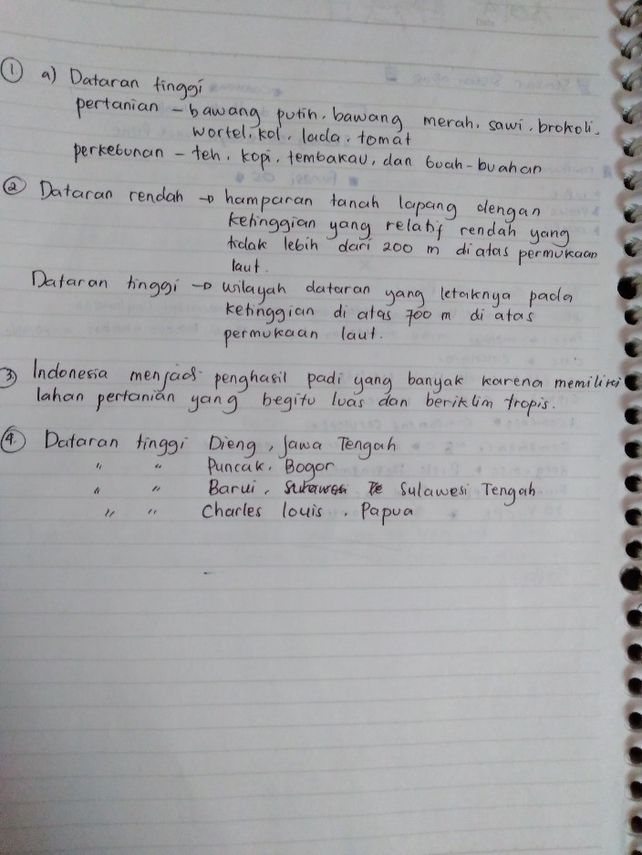 ① a) Dataran tinggi
pertanian - bawang putih, bawang merah, sawi, brokoli,
wortel, kol, lada, tomat
perkebunan - teh, kopi, tembakau, dan buah-buahan
② Dataran rendah → hamparan tanah lapang dengan
ketinggian yang relatif rendah yang
tidak lebih dari 200 m di atas permukaan
laut.
Dataran tinggi → wilayah dataran yang letaknya pada
ketinggian di atas 700 m di atas
permukaan laut.
③ Indonesia menjadi penghasil padi yang banyak karena memiliki
lahan pertanian yang begitu luas dan beriklim tropis.
④ Dataran tinggi Dieng, Jawa Tengah
" " Puncak, Bogor
" " Barui, Sulawesi Tengah
" " Charles Louis, Papua